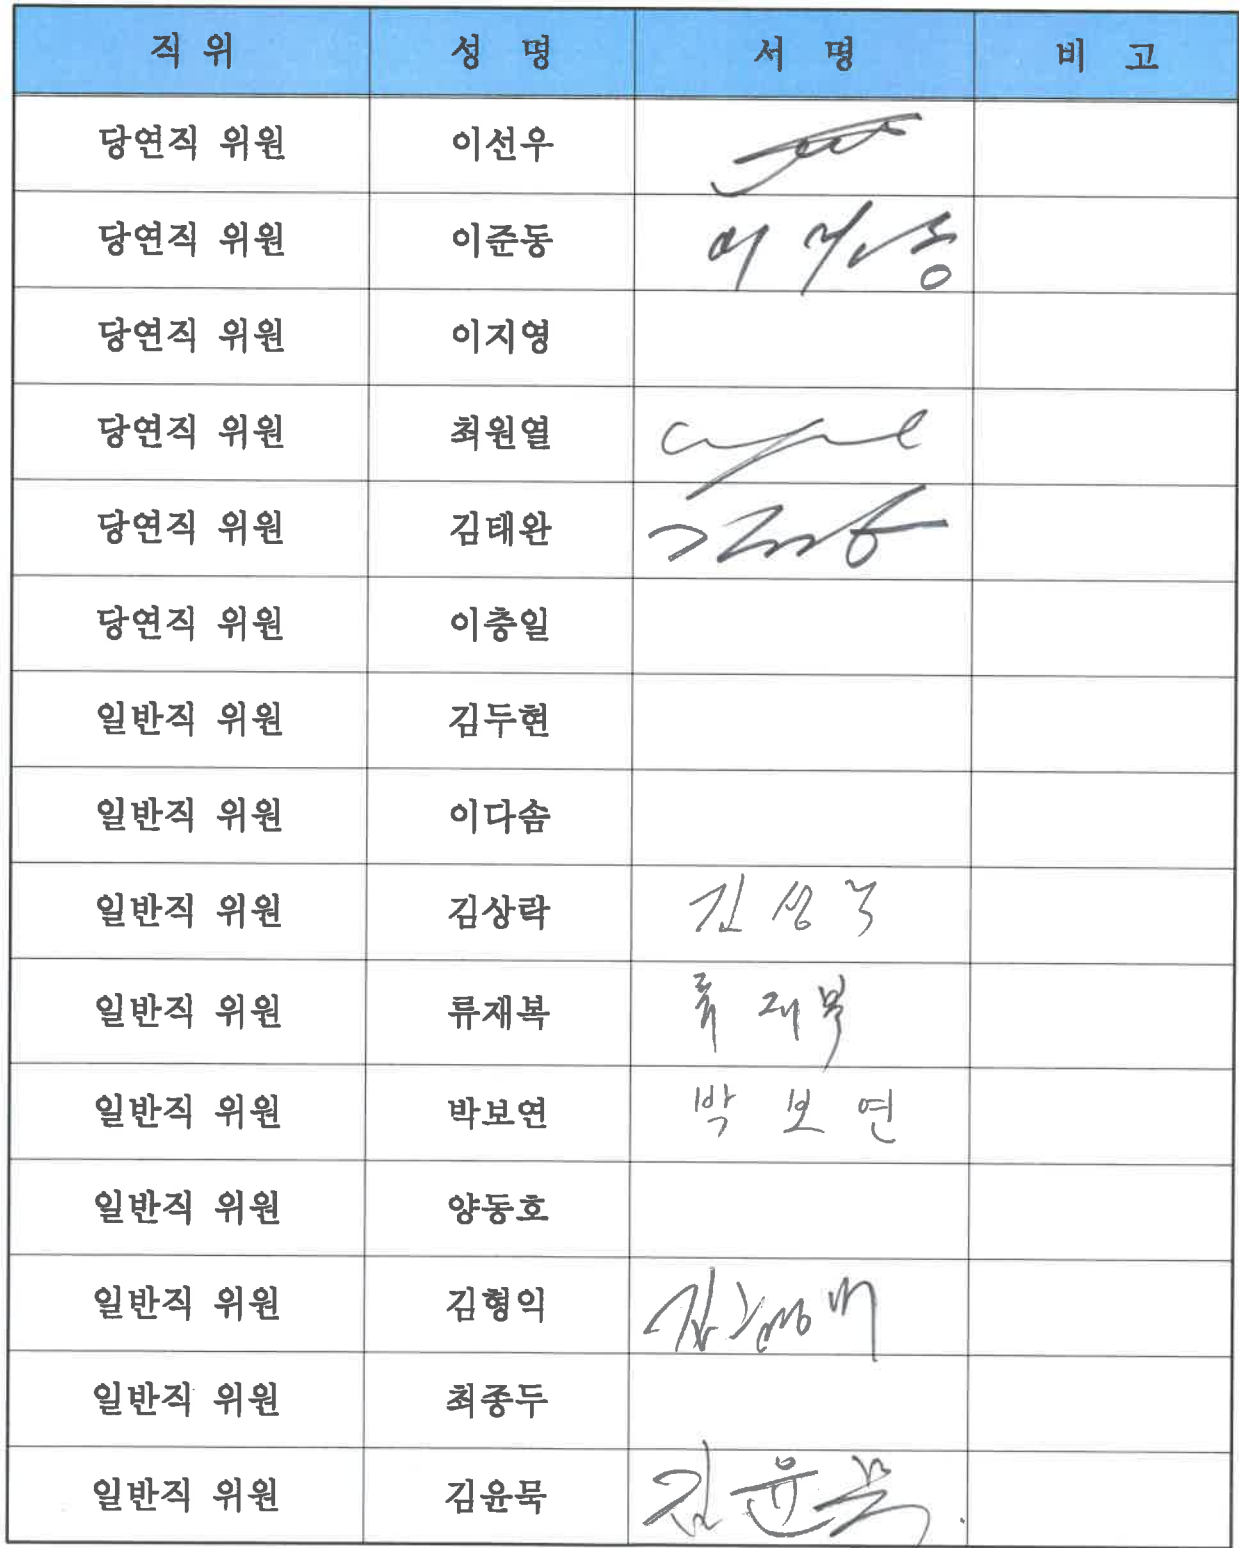 직 위 성 명 서 명 비 고
당연직 위원 이선우
당연직 위원 이준동
당연직 위원 이지영
당연직 위원 최원열
당연직 위원 김태완
당연직 위원 이충일
일반직 위원 김두현
일반직 위원 이다솜
일반직 위원 김상락
일반직 위원 류재복 류재복
일반직 위원 박보연 박보연
일반직 위원 양동호
일반직 위원 김형익
일반직 위원 최종두
일반직 위원 김윤묵 김윤묵